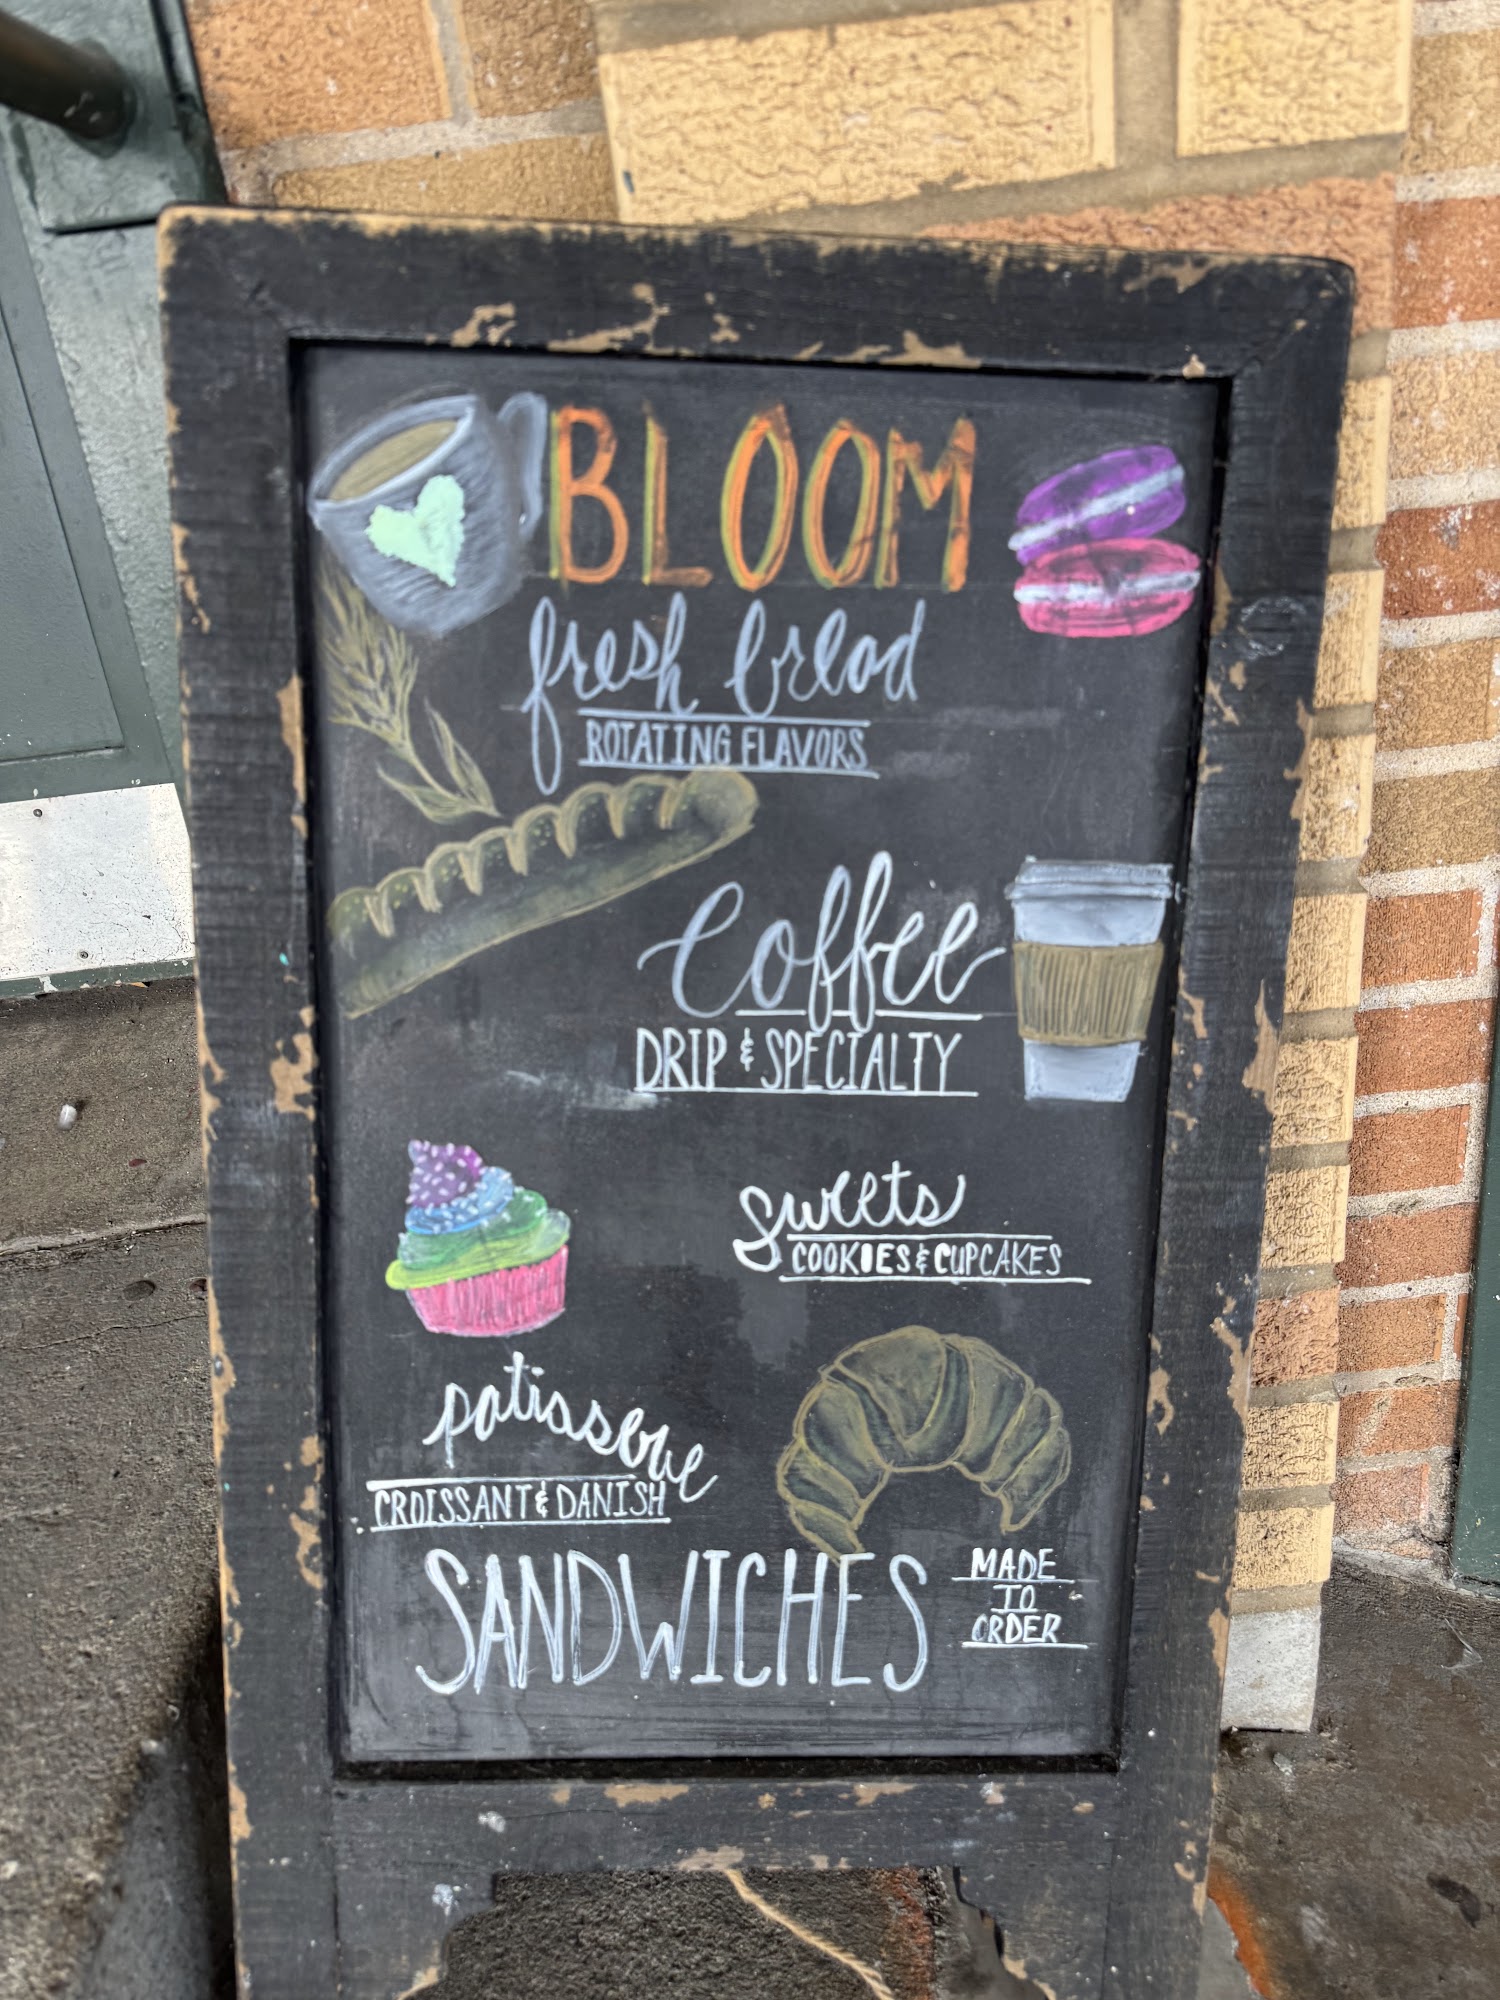 BLOOM
fresh bread
ROTATING FLAVORS
Coffee
DRIP & SPECIALTY
sweets
COOKIES & CUPCAKES
patisserie
CROISSANT & DANISH
SANDWICHES
MADE
TO
ORDER